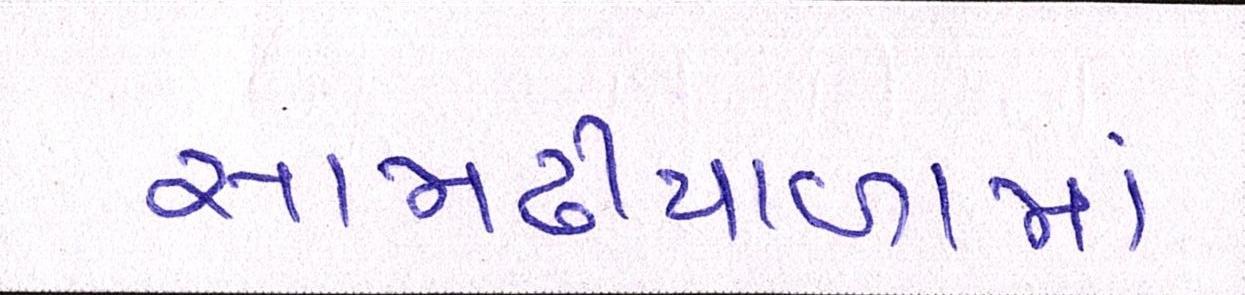 સામઢીયાળામાં